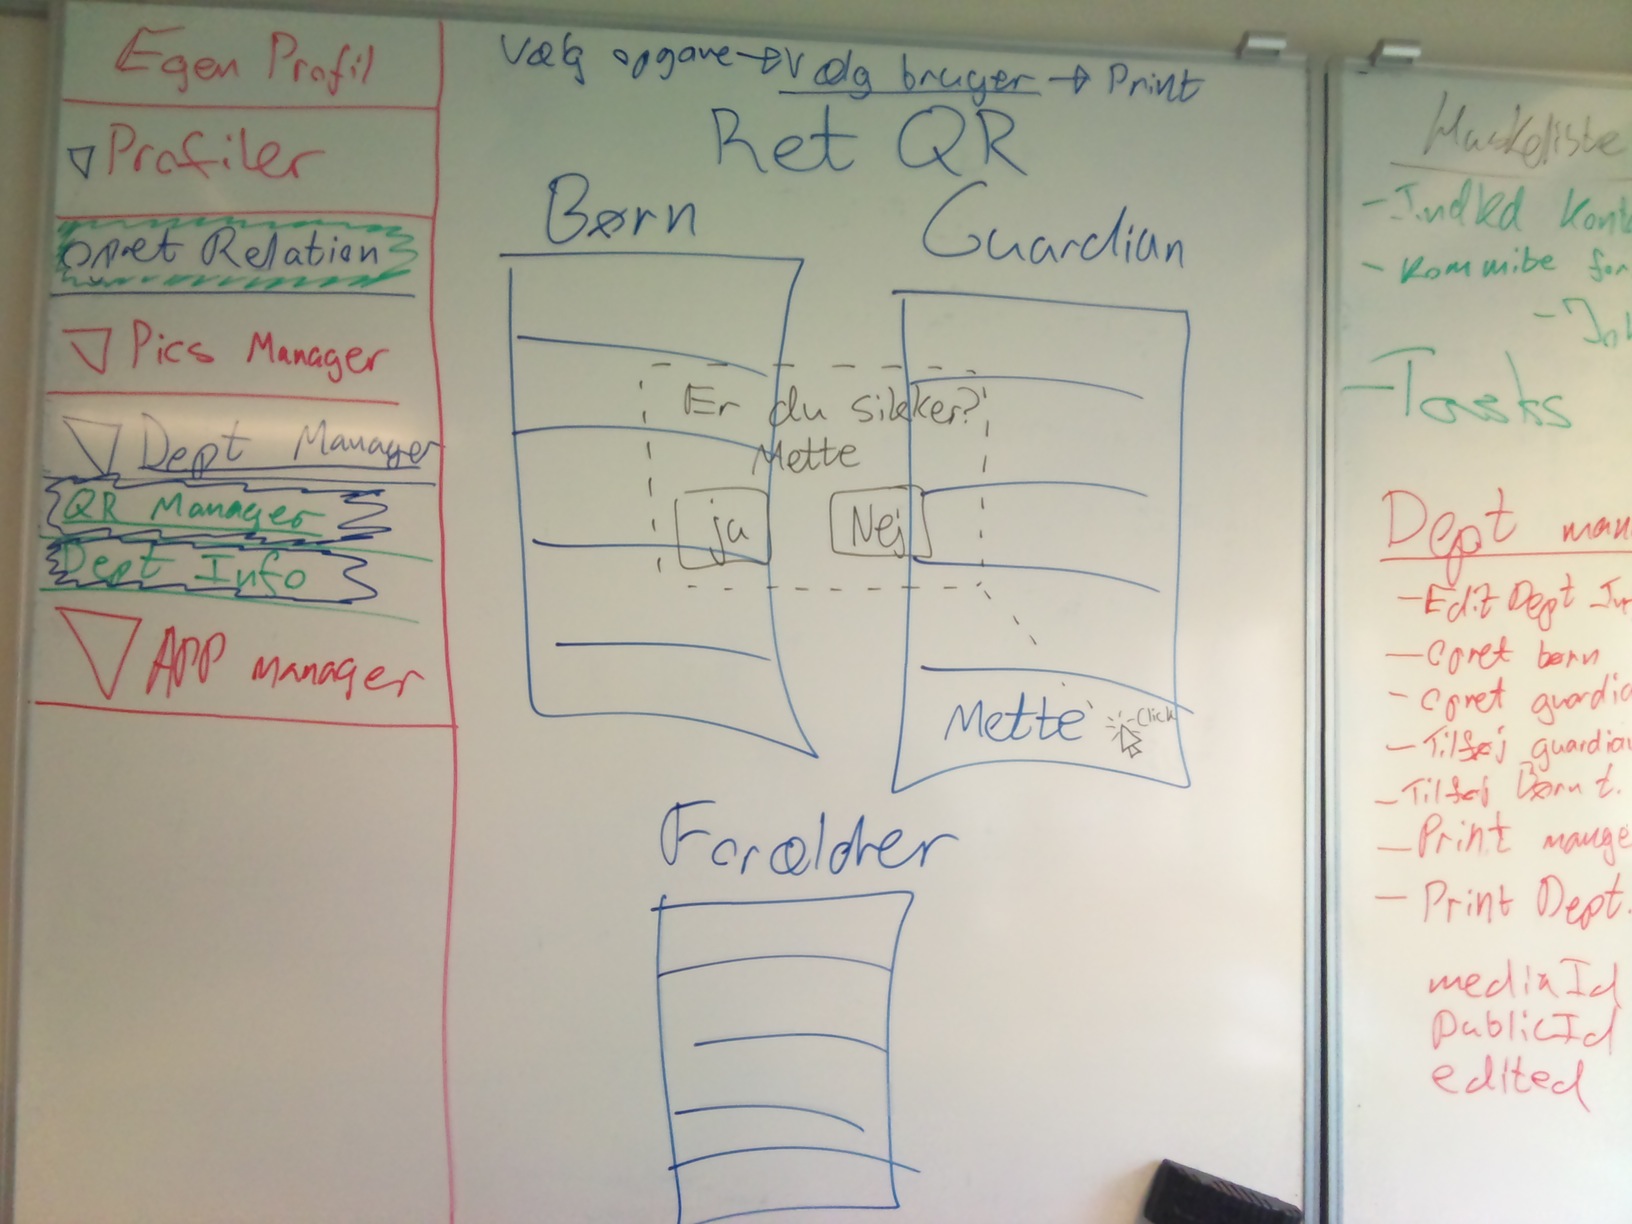 Egen Profil
Profiler
Opret Relation
Pics Manager
Dept Manager
QR Manager
Dept Info
APP manager
Vælg opgave → Vælg bruger → Print
Ret QR
Børn
Guardian
Er du sikker?
Mette
ja
Nej
Mette
Click
Forældrer
Huskeliste
- Indkd Kont
- Kommite for
- Tasks
Dept man
- Edit Dept In
- Opret børn
- Opret guardia
- Tilføj guardian
- Tilføj Børn t.
- Print mange
- Print Dept.
mediaId
publicId
edited